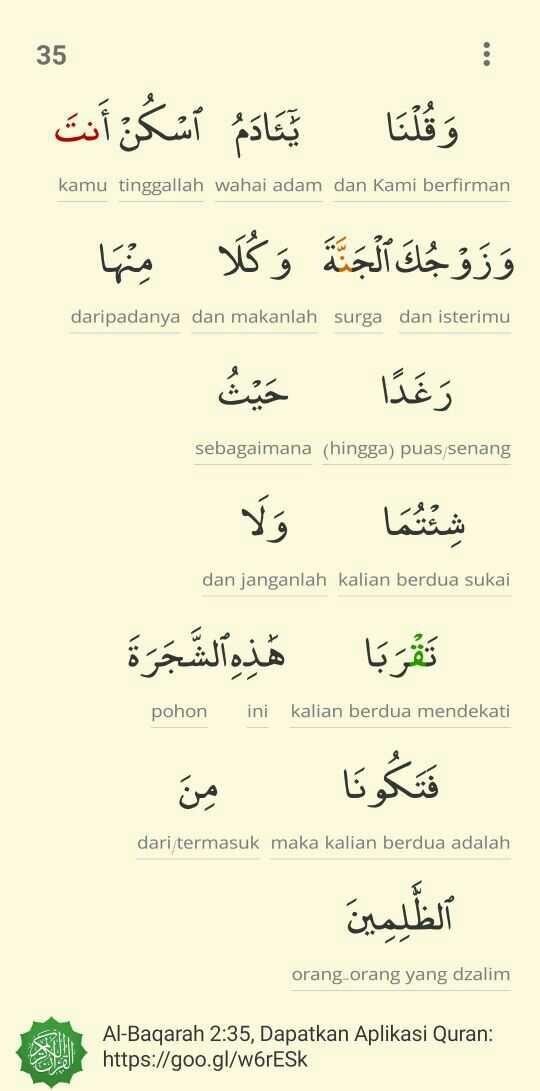 35
وَقُلْنَا يَٰٓـَٔادَمُ ٱسْكُنْ أَنتَ
dan Kami berfirman wahai adam tinggallah kamu
وَزَوْجُكَ ٱلْجَنَّةَ وَكُلَا مِنْهَا
dan isterimu surga dan makanlah daripadanya
رَغَدًا حَيْثُ
(hingga) puas/senang sebagaimana
شِئْتُمَا وَلَا
kalian berdua sukai dan janganlah
تَقْرَبَا هَٰذِهِ ٱلشَّجَرَةَ
kalian berdua mendekati ini pohon
فَتَكُونَا مِنَ
maka kalian berdua adalah dari/termasuk
ٱلظَّٰلِمِينَ
orang-orang yang dzalim
Al-Baqarah 2:35, Dapatkan Aplikasi Quran:
https://goo.gl/w6rESk